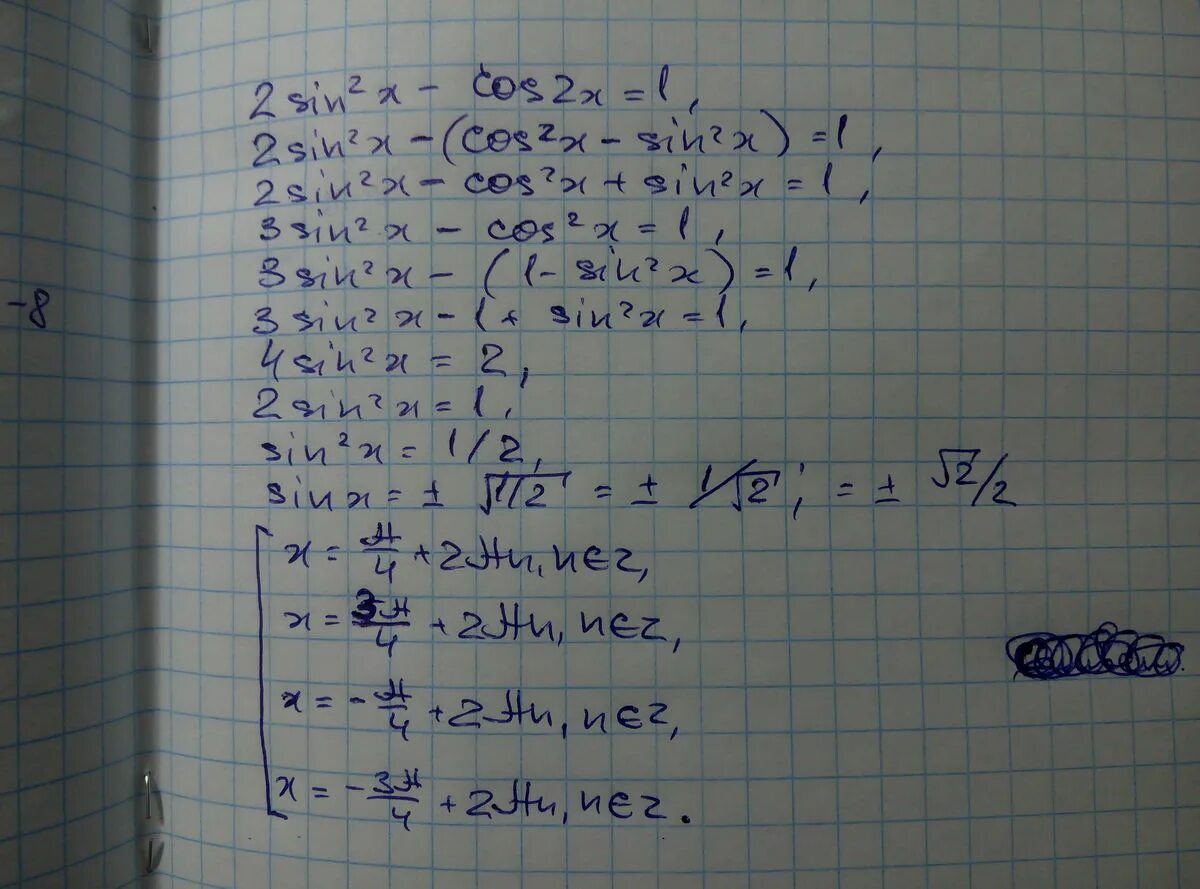 2 sin² x - cos 2x = 1,
2 sin² x - (cos² x - sin² x) = 1,
2 sin² x - cos² x + sin² x = 1,
3 sin² x - cos² x = 1,
3 sin² x - (1 - sin² x) = 1,
-8
3 sin² x - 1 + sin² x = 1,
4 sin² x = 2,
2 sin² x = 1,
sin² x = 1/2,
sin x = ± √(1/2) = ± 1/√2; = ± √2/2
x = π/4 + 2πn, n∈z,
x = 3π/4 + 2πn, n∈z,
x = -π/4 + 2πn, n∈z,
x = -3π/4 + 2πn, n∈z.